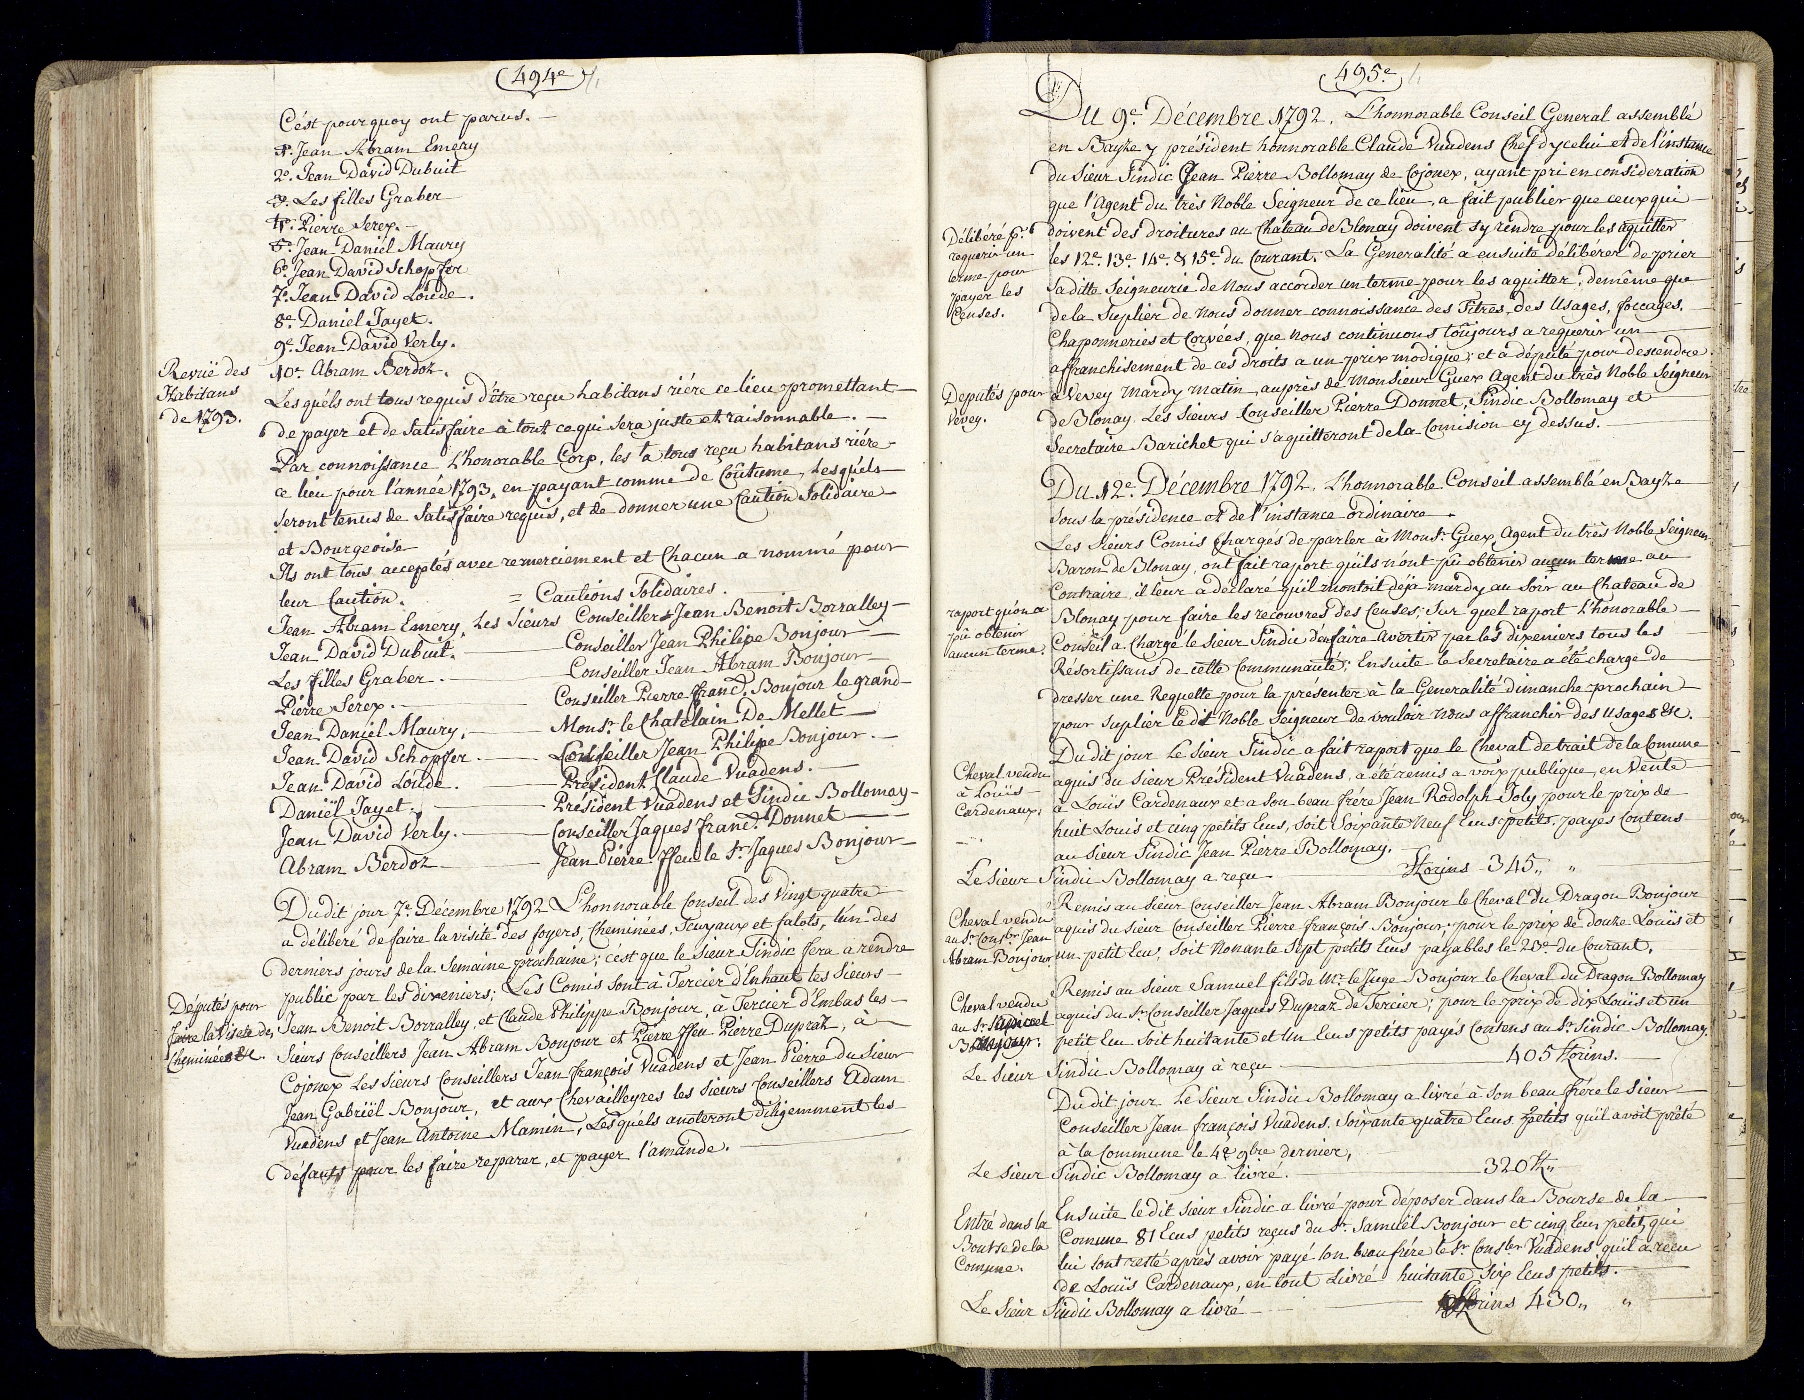 494e
C'ést pourquoy ont parus. —
1°. Jean Abram Emery
2°. Jean David Dubuit
3°. Les filles Graber
4°. Pierre Serex. —
5°. Jean Daniél Maury
6°. Jean David Schopfer
7°. Jean David Loude.
8°. Daniel Jayet.
9°. Jean David Verly.
10°. Abram Berdoz.
Revuë des
Habitans
de 1793.
Lesquéls ont tous requis d'être reçu habitans riére ce lieu promettant
de payer et de Satisfaire à tout ce qui sera juste et raisonnable. —
Par connoissance L'honorable Corp, les a tous reçu habitans riére
ce lieu pour l'année 1793, en payant comme de Coûtume, Lesquéls
seront tenus de Satisfaire requis, et de donner une Caution Solidaire
et Bourgeoise
Ils ont tous acceptés avec remerciement et Chacun a nommé pour
leur Caution. = Cautions Solidaires.
Jean Abram Emery, Les Sieurs Conseiller Jean Benoit Borralley —
Jean David Dubuit. — Conseiller Jean Philipe Bonjour —
Les filles Graber. — Conseiller Jean Abram Bonjour —
Pierre Serex. — Conseiller Pierre franc. Bonjour le grand —
Jean Daniel Maury. — Monsr. le Chatelain De Mellet —
Jean David Schopfer. — Conseiller Jean Philipe Bonjour. —
Jean David Loude. — Président Claude Vuadens. —
Daniël Jayet. — Président Vuadens et Sindic Bollomay —
Jean David Verly. — Conseiller Jaques franc. Donnet —
Abram Berdoz — Jean Pierre ffeu le Sr. Jaques Bonjour —
Du dit jour 7e. Décembre 1792 L'honnorable Conseil des Vingt quatre
a délibéré de faire la visite des foyers, Cheminées, Tuyaux et falots, l'un des
derniers jours de la Semaine prochaine; c'ést que le Sieur Sindic fera a rendre
public par les dixeniers; Les Comis sont à Tercier d'Enhaut les Sieurs
Députés pour
faire la Visete des
Cheminées &c.
Jean Benoit Borralley, et Claude Philippe Bonjour, à Tercier d'Embas les
Sieurs Conseillers Jean Abram Bonjour et Pierre ffeu Pierre Dupraz, à
Cojonex Les Sieurs Conseillers Jean françois Vuadens et Jean Pierre du Sieur
Jean Gabriël Bonjour, et aux Chevailleyres les Sieurs Conseillers Adam
Vuadens et Jean Antoine Mamin, Lesquéls anoteront diligemment les
défauts pour les faire reparer, et payer l'amande.
495e
Du 9e. Décembre 1792. L'honnorable Conseil General assemblé
en Bayze y président honnorable Claude Vuadens Chef d'ycelui et de l'instance
du Sieur Sindic Jean Pierre Bollomay de Cojonex, ayant pri en consideration
que l'Agent du très Noble Seigneur de ce lieu, a fait publier que ceux qui
Délibéré pr.
requerir un
terme pour
payer les
Censes.
doivent des droitures au Chateau de Blonay doivent s'y rendre pour les aquitter
les 12e. 13e. 14e. & 15e. du Courant. La Generalité a ensuite délibérer de prier
Saditte Seigneurie de Nous accorder un terme pour les aquitter, demême que
de la Suplier de nous donner connoissance des Titres, des Usages, foccages,
Chaponneries et Corvées, que nous continuons toûjours a requerir un
affranchisement de ces droits a un prix modique; et a député pour descendre
Deputés pour
Vevey.
à Vevey Mardy Matin, auprès de Monsieur Guex Agent du très Noble Seigneur
de Blonay, Les Sieurs Conseiller Pierre Donnet, Sindic Bollomay et
Secretaire Barichet qui s'aquitteront de la Comision cy dessus. —
Du 12e. Décembre 1792. L'honnorable Conseil assemblé en Bayze
sous la présidence et de l'instance ordinaire.
Les Sieurs Comis chargés de parler à Monsr. Guex Agent du très Noble Seigneur
Baron de Blonay, ont fait raport qu'ils n'ont pû obtenir aucun terme au
Contraire, il leur a déclaré qu'il montoit déja mardy au Soir au Chateau de
raport qu'on a
pû obtenir
aucun terme.
Blonay pour faire les recouvres des Censes; Sur quel raport L'honorable
Conseil a Chargé le Sieur Sindic de faire Avertir par les dixeniers tous les
Résortissans de cette Communauté; Ensuite le Secretaire a été chargé de
dresser une Requette pour la présenter à la Generalité dimanche prochain
pour Suplier le dit Noble Seigneur de vouloir nous affranchir des Usages &c.
Du dit jour Le Sieur Sindic a fait raport que le Cheval de trait de la Comune
Cheval vendu
à Louïs
Cardenaux.
aquis du Sieur Président Vuadens, a été remis a voix publique, en Vente
à Louïs Cardenaux et a son beau frére Jean Rodolph Joly pour le prix de
huit Louis et cinq petits Ecus, Soit Soixante Neuf Ecus petits, payés Contens
au Sieur Sindic Jean Pierre Bollomay.
Le Sieur Sindic Bollomay a reçu — florins 345 „ „
Remis au Sieur Conseiller Jean Abram Bonjour le Cheval du Dragon Bonjour
Cheval vendu
au Sr. Consler. Jean
Abram Bonjour
aquis du Sieur Conseiller Pierre françois Bonjour, pour le prix de douze Louïs et
un petit Ecu, Soit Nonante Sept petits Ecus payables le 23e. du Courant.
Remis au Sieur Samuel fils de Mr. le Juge Bonjour le Cheval du Dragon Bollomay
Cheval vendu
au Sr. Samuel
Bonjour.
aquis du Sr. Conseiller Jaques Dupraz de Tercier; pour le prix de dix Louïs et un
petit Ecu Soit huitante et Un Ecus petits payés Contens au Sr. Sindic Bollomay.
Le Sieur Sindic Bollomay à reçu — 405 florins. —
Du dit jour Le Sieur Sindic Bollomay a livré à Son beau frére le Sieur
Conseiller Jean françois Vuadens, Soixante quatre Ecus petits qu'il avoit prêté
à la Commune le 4e. 9bre dernier.
Le Sieur Sindic Bollomay à livré. — 320 fl „
Ensuite le dit Sieur Sindic a livré pour déposer dans la Bourse de la
Entré dans la
Bourse de la
Comune.
Comune 81 Ecus petits reçus du Sr. Samuël Bonjour et cinq Ecus petits qui
lui sont resté après avoir payé son beau frére le Sr. Consler Vuadens qu'il a reçu
de Louïs Cardenaux, en tout Livré huitante Six Ecus petits.
Le Sieur Sindic Bollomay a livré — florins 430 „ „